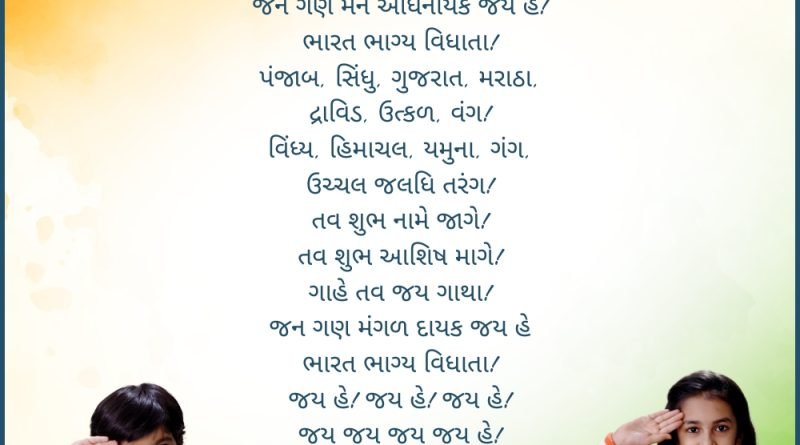 જન ગણ મન અધિનાયક જય હે!
ભારત ભાગ્ય વિધાતા!
પંજાબ, સિંધુ, ગુજરાત, મરાઠા,
દ્રાવિડ, ઉત્કળ, વંગ!
વિંધ્ય, હિમાચલ, યમુના, ગંગ,
ઉચ્ચલ જલધિ તરંગ!
તવ શુભ નામે જાગે!
તવ શુભ આશિષ માગે!
ગાહે તવ જય ગાથા!
જન ગણ મંગળ દાયક જય હે
ભારત ભાગ્ય વિધાતા!
જય હે! જય હે! જય હે!
જય જય જય જય હે!